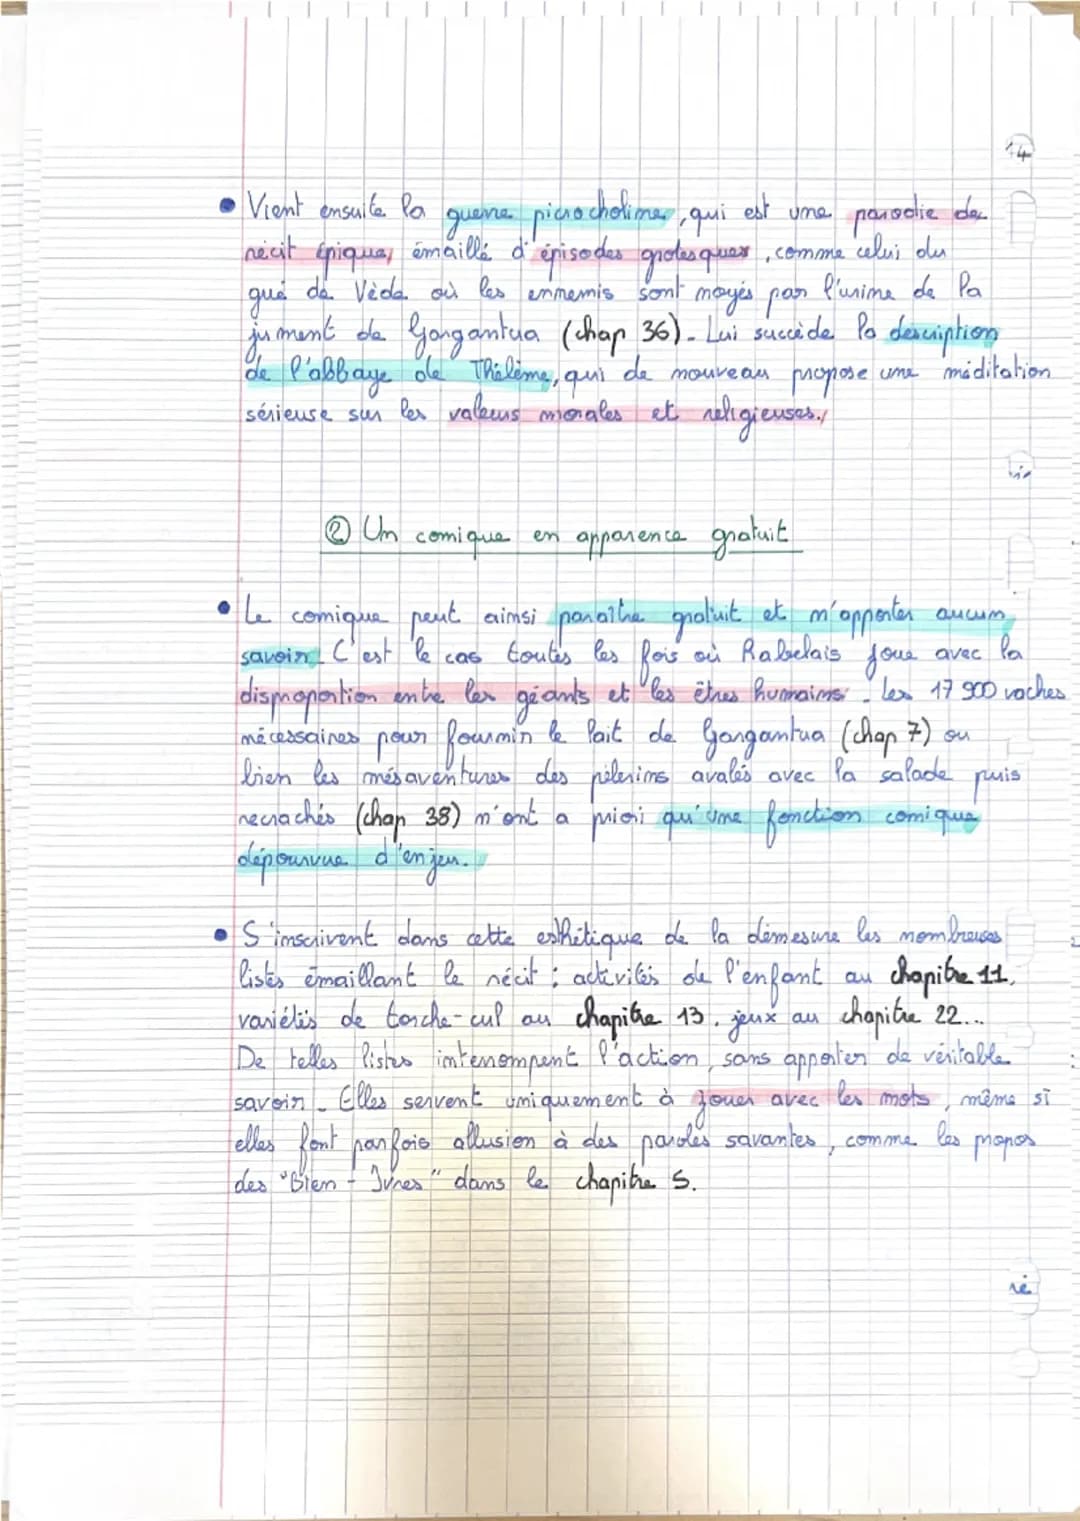 14
• Vient ensuite la guerre picrocholine, qui est une parodie de
récit épique, émaillé d'épisodes grotesques, comme celui du
gué de Vède où les ennemis sont noyés par l'urine de la
jument de Gargantua (chap 36). Lui succède la description
de l'abbaye de Thélème, qui de nouveau propose une méditation
sérieuse sur les valeurs morales et religieuses.
② Un comique en apparence gratuit
• Le comique peut ainsi paraître gratuit et n'apporter aucun
savoir. C'est le cas toutes les fois où Rabelais joue avec la
disproportion entre les géants et les êtres humains. Les 17 900 vaches
nécessaires pour fournir le lait de Gargantua (chap 7) ou
bien les mésaventures des pèlerins avalés avec la salade puis
recrachés (chap 38) n'ont a priori qu'une fonction comique
dépourvue d'enjeu.
• S'inscrivent dans cette esthétique de la démesure les nombreuses
listes émaillant le récit : activités de l'enfant au chapitre 11,
variétés de torche-cul au chapitre 13, jeux au chapitre 22...
De telles listes interrompent l'action, sans apporter de véritable
savoir. Elles servent uniquement à jouer avec les mots, même si
elles font parfois allusion à des paroles savantes, comme les propos
des "Bien-Ivres" dans le chapitre 5.